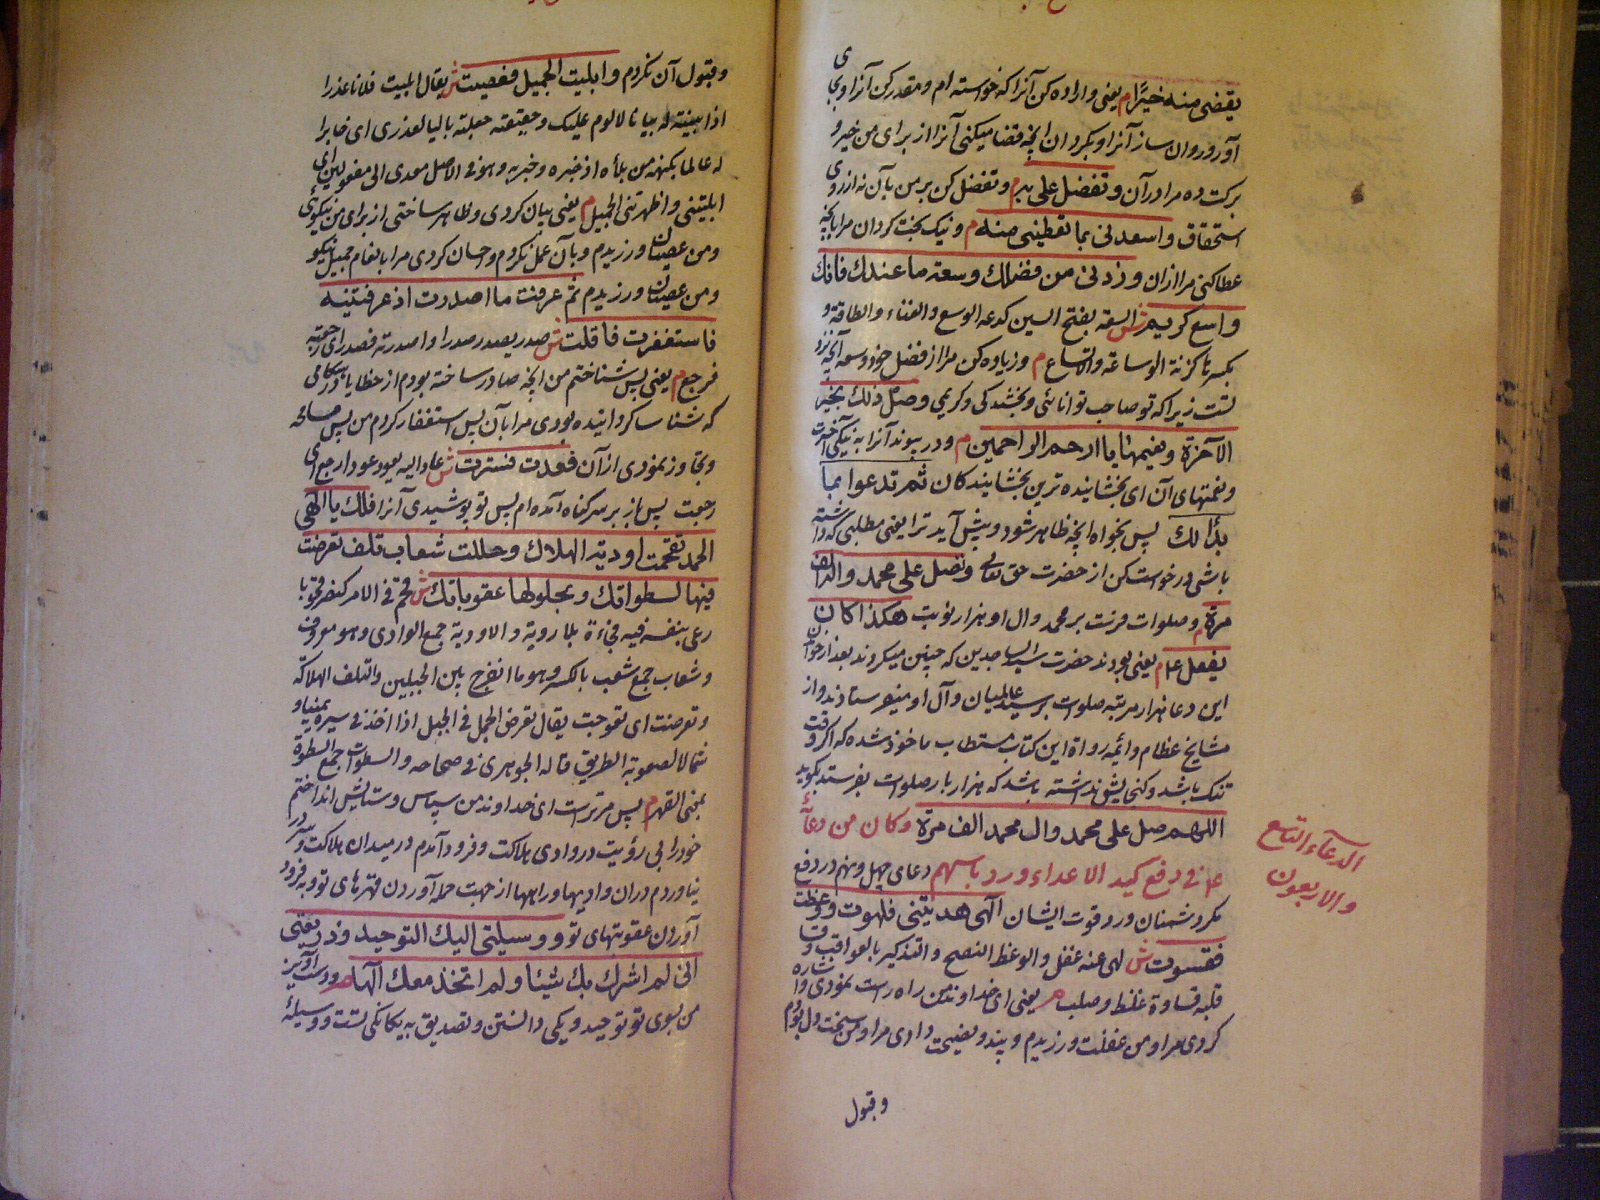 یقضی منه خیرًا م یعنی و اراده کن آنرا که خواسته ام و مقدر کن آنرا و بجای
آور و روان ساز آنرا و بکردان انچه قضا میکنی آنرا از برای من خیر و
برکت ده مرا در آن و تفضل علی به م و تفضل کن بر من بآن نه از روی
استحقاق و اسعدنی بما تعطینی منه م و نیک بخت کردان مرا بانچه
عطا کنی مرا ازان و زدنی من فضلك وسعة ما عندك فانك
واسع کریم ش السعة بفتح السین کدعة الوسع و الغناء و الطاقة و
بکسر تا کزنة الوساعة والاتساع م و زیاده کن مرا از فضل خود و سعه آنچه نزد
تست زیرا که تو صاحب توانائی و بخشندکی و کریمی وصل ذلك بخیر
الآخرة ونعیمها یا ارحم الراحمین م و در پیوند آنرا به نیکی آخرت
و نعمتهای آن ای بخشاینده ترین بخشایندکان ثم تدعوا بما
بدا لك پس بخواه انچه ظاهر شود و پیش آید ترا یعنی مطلبی که داشته
باشی درخواست کن از حضرت حق تعالی و تصل علی محمد و اله الف
مرة م و صلوات فرست بر محمد و ال او هزار نوبت هکذا کان
یفعل ع م یعنی بودند حضرت سید الساجدین که چنین میکردند بعد از خواندن
این دعا هزار مرتبه صلوات بر سید عالمیان و آل او میفرستادند و از
مشایخ عظام و ائمه رواة این کتاب مستطاب ماخوذ شده که اکر وقت
تنک باشد و کنجایش نداشته باشد که هزار بار صلوات بفرستد بکوید
اللهم صل علی محمد وال محمد الف مرة وکان من دعآئه
ع م فی دفع کید الاعداء ورد باسهم دعای چهل و نهم در دفع
مکر دشمنان و رد قوت ایشان الهی هدیتنی فلهوت ووعظت
فقسوت ش لهی عنه غفل و الوعظ النصح و التذکیر بالعواقب و قسا
قلبه قساوة غلظ و صلب م یعنی ای خداوند من راه راست نمودی و اشاره
کردی مرا و من غفلت ورزیدم و پند و نصیحت دادی مرا و من سخت دل بودم
و قبول
الدعآء التاسع
والاربعون
و قبول آن نکردم و ابلیت الجمیل فعصیت ش یقال ابلیت فلانا عذرا
اذا بینته له بیانا لا لوم علیک و حقیقته جعلته بالیا لعذری ای خابرا
له عالما بکنهه من بلأه اذ خبره و خبر به و هو فی الاصل معدی الی مفعولین ای
ابلیتنی و اظهرتنی الجمیل م یعنی بیان کردی و ظاهر ساختی از برای من نیکوئی
و من عصیان ورزیدم و بآن عمل نکردم و احسان کردی مرا بانعام جمیل نیکو
و من عصیان ورزیدم ثم عرفت ما اصدرت اذ عرفتنیه
فاستغفرت فاقلت ش صدر یصدر صدرا و اصدرته فصدر ای رجعته
فرجع م یعنی پس شناختم من انچه صادر ساخته بودم از خطایا درهنکامی
که شناسا کردانیده بودی مرا بآن پس استغفار کردم من پس مسامحه
و تجاوز نمودی از آن فعدت فسترت ش عاد الیه یعود عودا رجع ای
رجعت پس باز بر سر کناه آمده ام پس تو پوشیدی آنرا فلك یا الهی
الحمد تقحمت اودیة الهلاك وحللت شعاب تلف تعرضت
فیها لسطواتك وبحلولها عقوباتك ش قحم فی الامر کنصر قحوبا
رمی بنفسه فیه فجأة بلا رویة و الاودیة جمع الوادی و هو معروف
و شعاب جمع شعب بالکسر و هو ما انفرج بین الجبلین والتلف الهلاکة
و تعرضت ای تعوجت یقال تعرض الجمل فی الجبل اذا اخذ فی سیره یمینا و
شمالا لصعوبة الطریق قاله الجوهری فی صحاحه و السطوات جمع السطوة
بمعنی القهر م پس مر تراست ای خداوند من سپاس و ستایش انداختم
خود را بی رؤیت در وادی هلاکت و فرود آمدم در میدان هلاکت و سر
نیاوردم دران وادیها و راهها از جهت حمله آوردن قهرهای تو و به فرود
آوردن عقوبتهای تو ووسیلتی الیك التوحید وذریعتی
انی لم اشرك بك شیئا ولم اتخذ معك الها م و دست آویز
من بسوی تو توحید و یکی دانستن و تصدیق به یکانکی تست و وسیلۀ